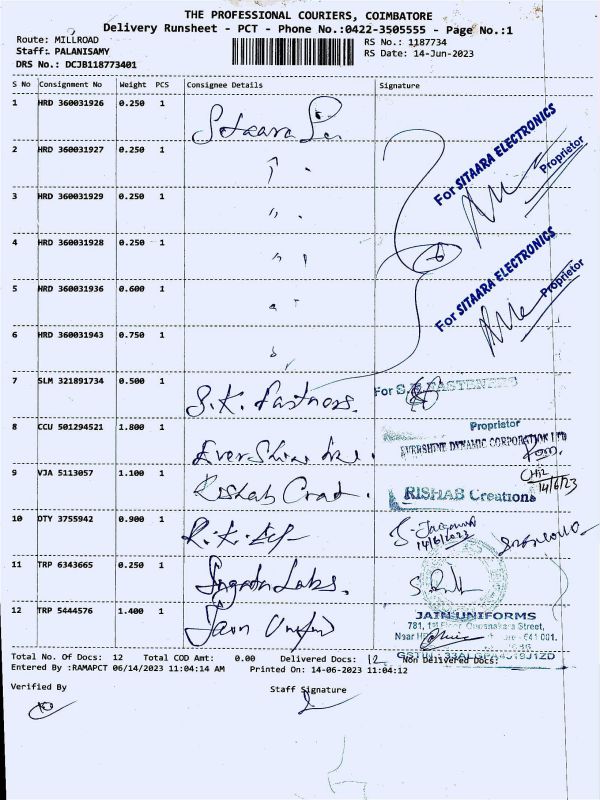 THE PROFESSIONAL COURIERS, COIMBATORE
Delivery Runsheet - PCT - Phone No.:0422-3505555 - Page No.:1
Route: MILLROAD
RS No.: 1187734
Staff: PALANISAMY
RS Date: 14-Jun-2023
DRS No.: DCJB118773401
S No Consignment No Weight PCS Consignee Details Signature
1 HRD 360031926 0.250 1
For SITAARA ELECTRONICS
Proprietor
2 HRD 360031927 0.250 1 "
3 HRD 360031929 0.250 1 "
4 HRD 360031928 0.250 1 "
For SITAARA ELECTRONICS
Proprietor
5 HRD 360031936 0.600 1
6 HRD 360031943 0.750 1
7 SLM 321891734 0.500 1 S.K. Fastners. For S.K. FASTENERS
Proprietor
8 CCU 501294521 1.800 1 EverShine EVERSHINE DYNAMIC CORPORATION LTD
9 VJA 5113057 1.100 1 Rishab Creat. RISHAB Creations
14/6/23
10 OTY 3755942 0.900 1 R.K.
14/6/2023
11 TRP 6343665 0.250 1 Labs.
12 TRP 5444576 1.400 1 Jain Uniform JAIN UNIFORMS
781, 1st Floor Oppanakara Street,
641 001.
Total No. Of Docs: 12 Total COD Amt: 0.00 Delivered Docs: 12 Non Delivered Docs:
Entered By :RAMAPCT 06/14/2023 11:04:14 AM Printed On: 14-06-2023 11:04:12
Verified By Staff Signature